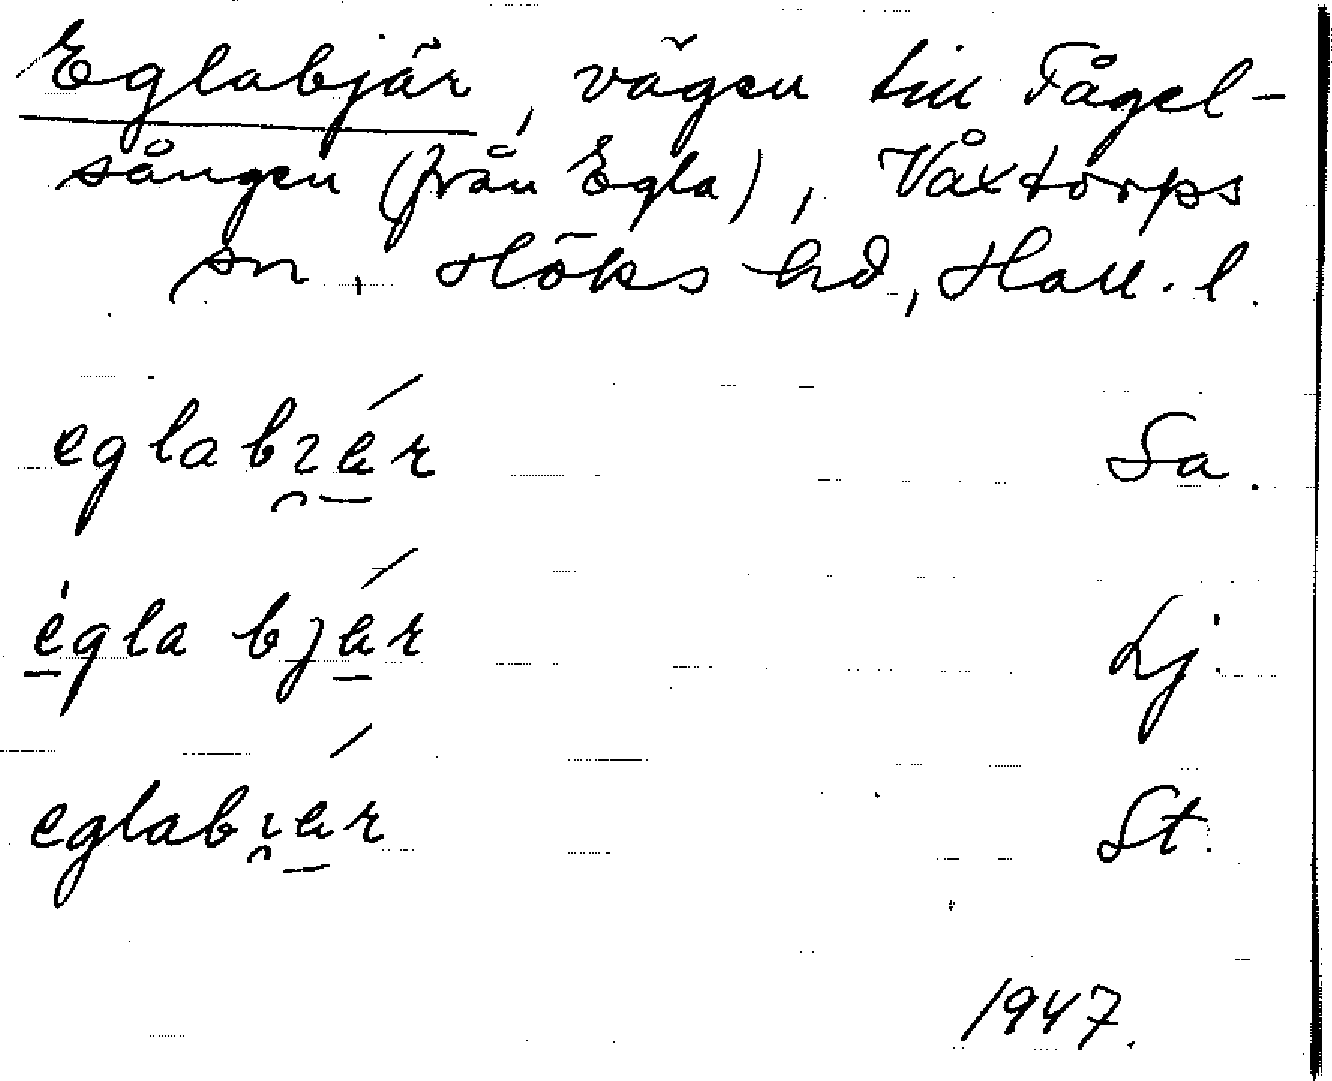 Eglabjär, vägen till Fågel-
sången (från Egla), Våxtorps
sn, Höks hd, Hall. l.
eglabɪ̯ǽr Sa.
égla bjǽr Lj.
eglabɪ̯ǽr St.
1947.